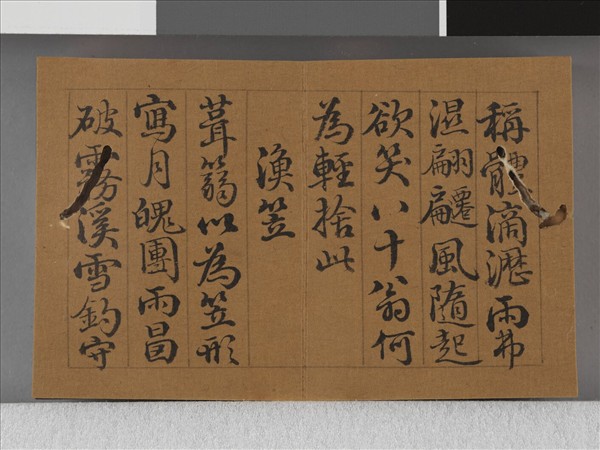 稱體滴瀝雨弗
濕翩風隨起
欲笑八十翁何
為輕捨此
漁笠
葺篛以為笠形
寫月魄團雨冒
破霧溪雪釣守